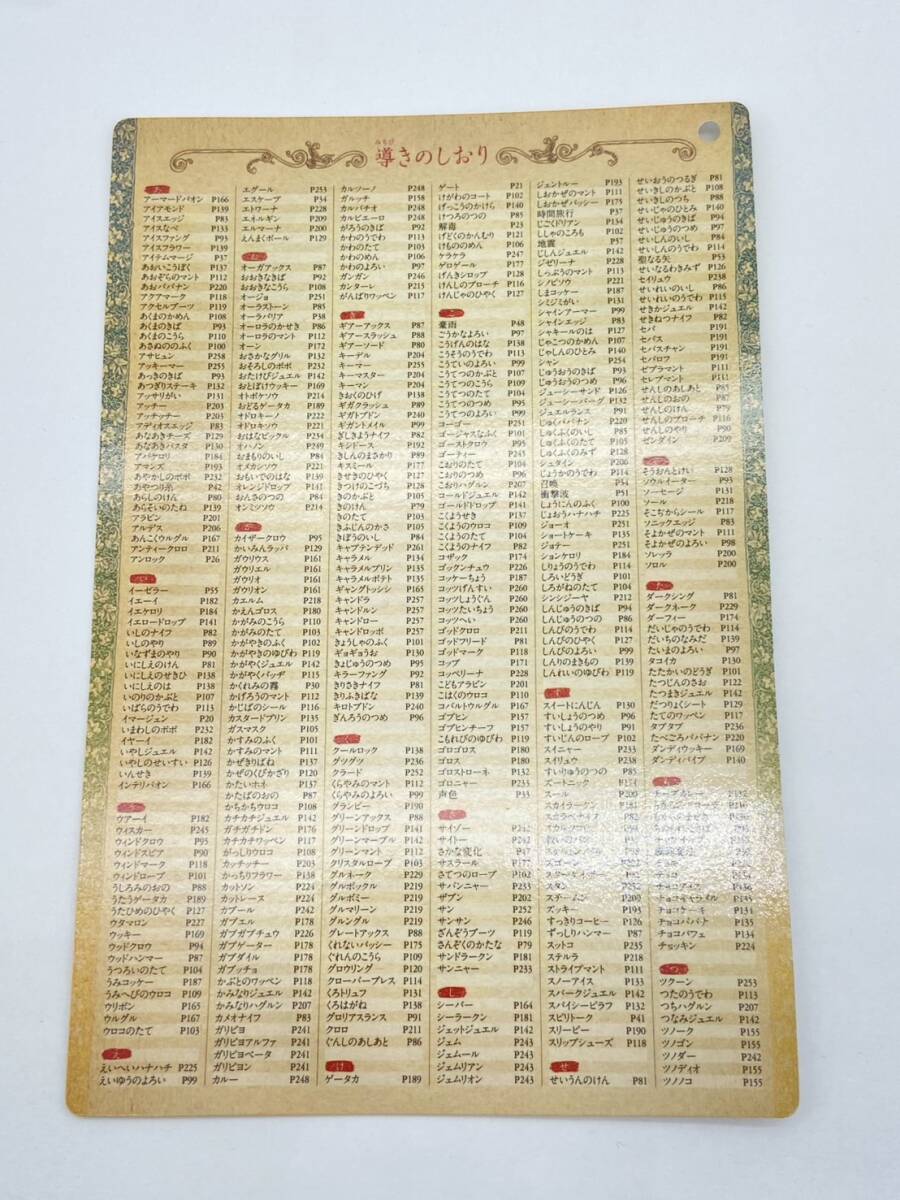 みちび
導きのしおり
あ
アーマードバオン P166
アイアモンド P139
アイスエッジ P83
アイスなべ P133
アイスファング P93
アイスフラワー P139
アイテムマージ P37
あおいこうぼく P137
あおぞらのマント P112
あおババナン P220
アクアマーク P118
アクセルブーツ P119
あくまのかめん P108
あくまのきば P93
あくまのこうら P110
あさぬののふく P100
アサヒュン P258
アッキーマー P255
あっきのきば P93
あつぎりステーキ P132
アッサリがい P131
アッチー P203
アッチッチー P203
アディオスエッジ P83
あなあきチーズ P129
あなあきパスタ P130
アパケロリ P184
アマンズ P193
あやかしのボボ P232
あやつり糸 P42
あらしのけん P80
あらそいのたね P139
アラビン P201
アルデス P206
あんこくウルグル P167
アンティークロロ P211
アンロック P26
い
イーゼラー P55
イエーイ P182
イエケロリ P184
イエロードロップ P141
いしのナイフ P82
いしのやり P89
いなずまのやり P90
いにしえのけん P81
いにしえのせきひ P138
いにしえのは P138
いのりのかぶと P107
いばらのうでわ P113
イマージェン P20
いまわしのボボ P232
イヤーイ P182
いやしジュエル P142
いやしのせいすい P126
いんせき P139
インテリバオン P166
う
ウアーイ P182
ウィスカー P245
ウィンドクロウ P95
ウィンドスピア P90
ウィンドマーク P118
ウィンドローブ P101
うしろみのおの P88
うたうゲータカ P189
うたひめのひやく P127
ウタマロン P227
ウッキー P169
ウッドクロウ P94
ウッドハンマー P87
うつろいのたて P104
うみコッケー P187
うみへびのウロコ P109
ウリボン P165
ウルグル P167
ウロコのたて P103
え
えいへいハナハチ P225
えいゆうのよろい P99
エグール P253
エスケープ P34
エトワーナ P228
エオルギン P209
エルマーナ P200
えんまくボール P129
お
オーガアックス P87
おおきなきば P92
おおきなこうら P108
オージョ P251
オーラストーン P85
オーラバリア P38
オーロラのかせき P86
オーロラのマント P112
オーン P172
おさかなグリル P132
おそろしのボボ P232
おたけびジュエル P142
おとぼけウッキー P169
オトボケソウ P214
おどるゲータカ P189
オドロキーノ P222
オドロキソウ P221
おはなピックル P234
オハノン P249
おまもりのいし P84
オメカシソウ P221
おもいでのはな P139
オレンジドロップ P141
おんさのつの P84
オンミツソウ P214
か
カイザークロウ P95
かいみんラッパ P129
ガウリウス P161
ガウリエル P161
ガウリオ P161
ガウリオン P161
カエルム P218
かえんゴロス P180
かがみのこうら P110
かがみのたて P103
かがやきのふく P102
かがやきのゆびわ P119
かがやくジュエル P142
かがやくバッヂ P115
かくれみの霧 P30
かげろうのマント P112
かじばのシール P116
カスタードプリン P135
ガスマスク P105
かすみのふく P101
かすみのマント P111
かぜきりばね P137
かぜのくびかざり P120
かたいホオイ P137
かたばのおの P87
かちかちウロコ P108
カチカチジュエル P142
ガチガチドン P176
カチカチワッペン P117
がっしりウロコ P108
カッチッチー P203
かっちりフラワー P138
カットソン P224
カットレース P224
カブール P242
カブエル P178
カブガブチュウ P226
カブゲーター P178
ガブダイル P178
ガブッチョ P178
かぶとのワッペン P118
かみなりジュエル P142
かみなりハグルン P207
カメオナイフ P83
ガリビヨ P241
ガリビヨアルファ P241
ガリビヨベータ P241
ガリビヨン P241
カルー P248
カルソーノ P248
ガルッチ P158
カルバチオ P248
カルビエーロ P248
がろうのきば P92
かわのうでわ P113
かわのたて P103
かわのめん P106
かわのよろい P97
ガンガン P246
カンターレ P215
がんばりワッペン P117
き
ギアーアックス P87
ギアースラッシュ P88
ギアーソード P80
キーデル P204
キーマー P255
キーマスター P204
キーマン P204
きおくのひげ P138
ギガクラッシュ P89
ギガトブドン P240
ギガントメイル P99
ぎしきようナイフ P82
キジドース P192
きしんのまさかり P89
キスミール P177
きせきのひやく P127
きつけのこづち P128
きのかぶと P105
きのけん P79
きのたて P103
きふじんのかさ P105
きぼうのいし P84
キャプテンデッド P261
キャラメル P134
キャラメルプリン P135
キャラメルポテト P135
ギャングトッシイ P165
キャンドラ P257
キャンドルン P257
キャンドロー P257
キャンドロッポ P257
きょうしゃのふく P101
ギョギョうお P130
きょじゅうのつめ P95
キラーファング P92
きりさきナイフ P81
きりふきばな P139
キロトブドン P240
ぎんろうのつめ P96
く
クールロック P138
グツグツ P236
クラード P252
くらやみのマント P112
くらやみのよろい P99
グランピー P190
グリーンアックス P88
グリーンドロップ P141
グリーンマーブル P142
グリーンマント P112
クリスタルローブ P103
グルネーク P229
グルボックル P219
グルボミー P219
グルマリーン P219
グルングル P219
グレートアックス P88
くれないバッシー P175
ぐれんのこうら P109
グロウリング P120
クローバーブレス P114
くろトリュフ P131
くろはがね P138
グロリアスランス P91
クロロ P211
ぐんしのあしあと P86
け
ゲータカ P189
ゲート P21
けがわのコート P102
げっこうのかけら P140
けつろのつの P85
解毒 P23
げどくのかんむり P121
けもののめん P106
ケラケラ P247
ゲロゲール P177
げんきシロップ P128
けんしのブローチ P116
けんじゃのひやく P127
こ
豪雨 P48
ごうかなよろい P97
こうげんのはな P138
こうそうのうでわ P113
こうていのよろい P99
こうてつのかぶと P107
こうてつのこうら P109
こうてつのたて P104
こうてつのつめ P95
こうてつのよろい P99
コーゴー P251
ゴージャスなふく P101
ゴーストクロウ P95
ゴーティー P245
こおりのたて P104
こおりのつめ P96
こおりハグルン P207
ゴールドジュエル P142
ゴールドドロップ P141
こくようせき P137
こくようのウロコ P109
こくようのたて P104
こくようのナイフ P82
コザック P174
ゴックンチュウ P226
コッケーちょう P187
コッツげんすい P260
コッツしょうぐん P260
コッツたいちょう P260
コッツへい P260
ゴッドクロロ P211
ゴッドフリード P81
ゴッドマーク P118
コップ P171
コッペリーナ P228
こどもアラビン P201
こはくのウロコ P110
コバルトウルグル P167
ゴブヒン P157
ゴブヒンチーフ P157
こもれびのゆびわ P119
ゴロゴロス P180
ゴロス P180
ゴロストローネ P132
ゴロニャー P233
声色 P33
さ
サイゾー P242
サイトー P242
さかな変化 P47
サスラール P177
さてつのローブ P102
サバンニャー P233
ザブン P202
サン P252
サンサン P246
ざんぞうブーツ P119
さんぞくのかたな P79
サンドラークン P181
サンニャー P233
し
シーバー P164
シーラークン P181
ジェットジュエル P142
ジェム P243
ジェムール P243
ジェムリアン P243
ジェムリオン P243
ジェントルー P193
しおかぜのマント P111
しおかぜバッシー P175
時間旅行 P37
じごくドリアン P134
ししゃのころも P102
地震 P57
じしんジュエル P142
ジゼリーナ P228
しっぷうのマント P111
シノビソウ P221
しまコッケー P187
シミジミがい P131
シャインアーマー P99
シャインエッジ P83
シャキールのは P127
じゃこつのかめん P107
じゃしんのひとみ P140
シャン P254
じゅうおうのきば P93
じゅうおうのつめ P96
ジューシーサンド P126
ジューシーバーグ P132
ジュエルランス P91
じゅくババナン P220
しゅくふくのいし P85
しゅくふくのたて P105
しゅくふくのみず P128
シュタイン P206
じょうかのうでわ P114
召喚 P54
衝撃波 P51
しょうにんのふく P100
じょおうハナハチ P225
ジョーオ P251
ショートケーキ P135
ジョテー P251
ションケロリ P184
しりょうのうでわ P114
しろいどうぎ P101
しろがねのたて P104
シンシジーヤ P212
しんじゅうのきば P94
しんじゅうのつの P86
しんぴのうでわ P114
しんぴのひやく P127
しんぴのよろい P99
しんりのまきもの P139
しんれいのゆびわ P119
す
スイートにんじん P130
すいしょうのつめ P96
すいしょうのやり P91
すいじんのローブ P102
スイニャー P233
スイリュウ P238
すいりゅうのつの P85
ズートニック P174
スール P200
スカイラークン P181
スカラベナイフ P82
すっきりコーヒー P126
ずっしりハンマー P87
スットコ P235
ステルラ P218
ストライプマント P111
スノーアイス P133
スパークジュエル P142
スパイシーピラフ P132
スピリトーク P41
スリーピー P190
スリップシューズ P118
せ
せいうんのけん P81
せいおうのつるぎ P81
せいきしのかぶと P108
せいきしのつち P88
せいじゃのひとみ P140
せいじゅうのきば P94
せいじゅうのつめ P97
せいしんのいし P84
せいしんのうでわ P114
聖なる矢 P53
せいなるわきみず P126
セイリュウ P238
せいれいのいし P86
せいれいのうでわ P115
せきかジュエル P142
せきねつナイフ P82
セバ P191
セバス P191
セバスチャン P191
セバロフ P191
ゼブラマント P111
セレブマント P111
せんしのあしあと P85
せんしのおの P87
せんしのけん P79
せんしのブローチ P116
せんしのやり P90
ゼンダイン P209
そ
そうおんとけい P128
ソウルイーター P93
ソーセージ P131
ソール P218
そこぢからシール P117
ソニックエッジ P83
そよかぜのマント P111
そよかぜのよろい P98
ソレッラ P200
ソロル P200
た
ダークシング P81
ダークネーク P229
ダーフィー P174
だいじゃのうでわ P114
だいちのなみだ P139
たいまのよろい P97
タコイカ P130
たたかいのどうぎ P101
たつじんのさお P122
たつまきジュエル P142
だつりょくシート P129
たてのワッペン P117
タブタブ P236
たべごろババナン P220
ダンディウッキー P169
ダンディパイプ P140
チーズカレー P132
チョコアイス P133
チョコキャラメル P135
チョコケーキ P131
チョコバナナ P135
チョコパフェ P134
チョッキン P224
つ
ツクーン P253
つたのうでわ P113
つちハグルン P207
つなみジュエル P142
ツノーク P155
ツノゴン P155
ツノダー P242
ツノディオ P155
ツノノコ P155